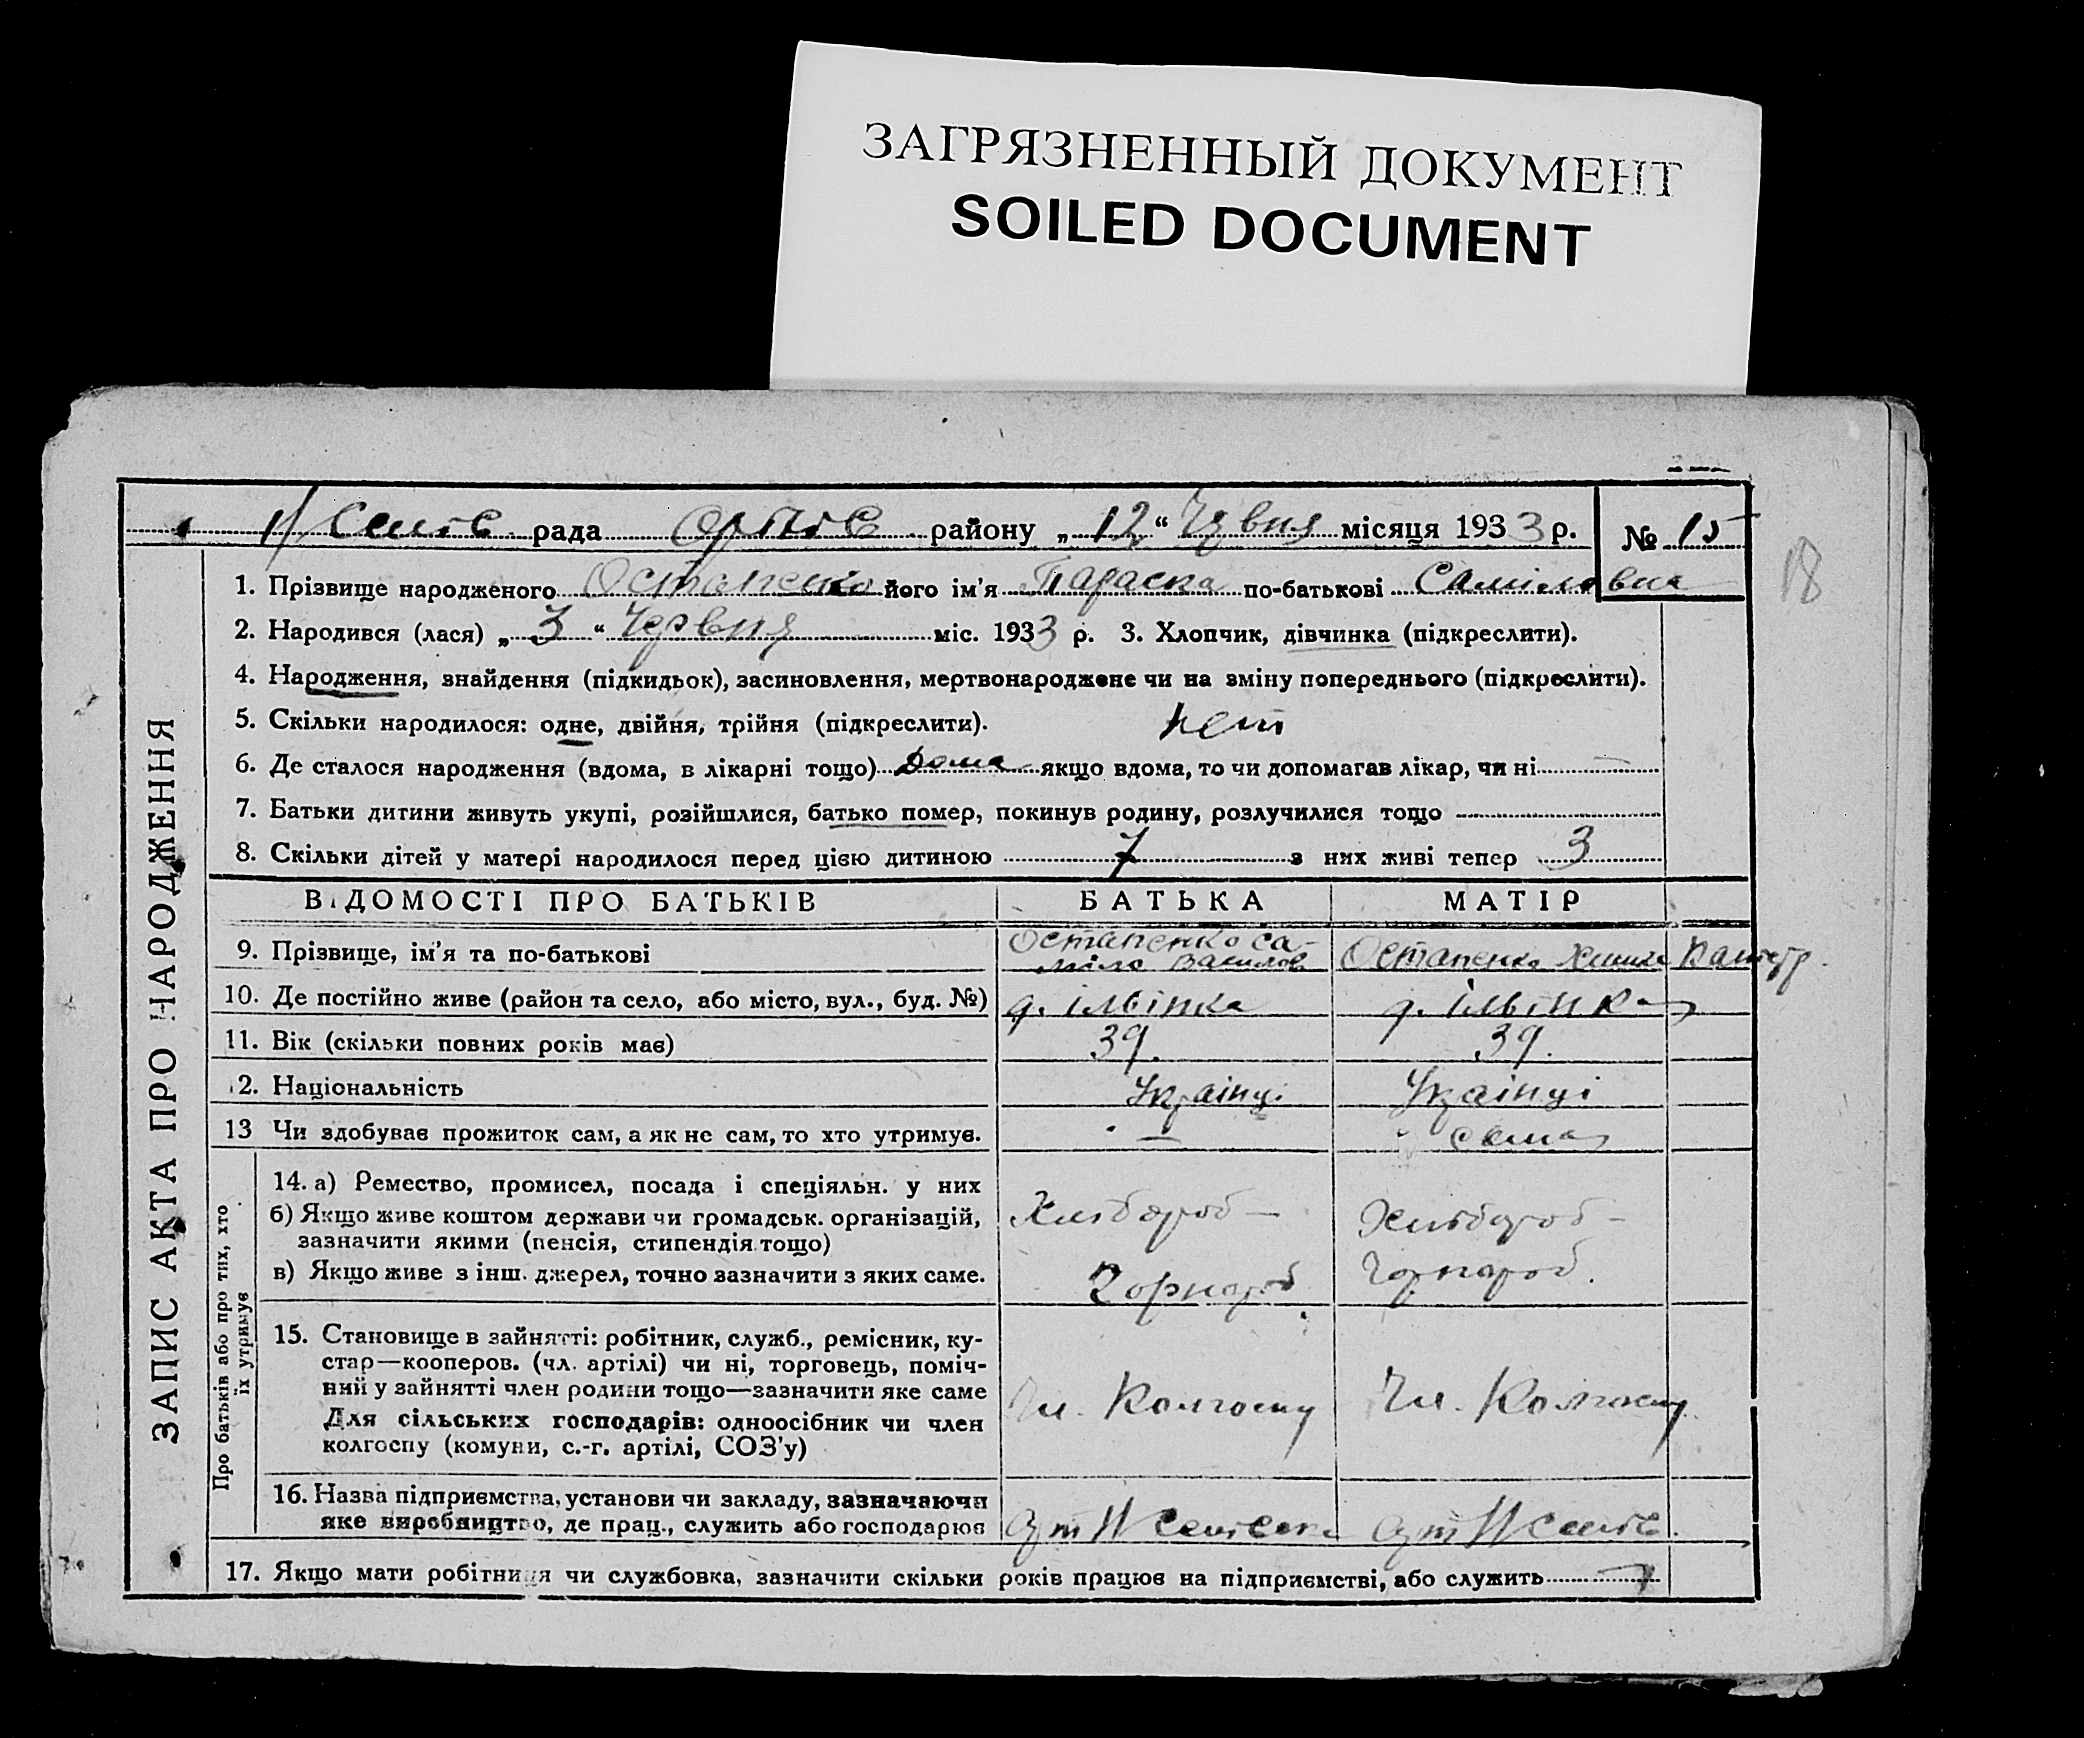 ЗАГРЯЗНЕННЫЙ ДОКУМЕНТ
SOILED DOCUMENT
рада района „ 12 “ місяця 1933 р. № 15
18
1. Прізвище народженого Остапенко його ім'я Параска по-батькові Самілавна
2. Народився (лася) „ 3 “ Червня міс. 1933 р. 3. Хлопчик, дівчинка (підкреслити).
4. Народження, знайдення (підкидьок), засиновлення, мертвонароджене чи на зміну попереднього (підкреслити).
5. Скільки народилося: одне, двійня, трійня (підкреслити). нет
6. Де сталося народження (вдома, в лікарні тощо) Дома якщо вдома, то чи допомагав лікар, чи ні —
7. Батьки дитини живуть укупі, розійшлися, батько помер, покинув родину, розлучилися тощо
8. Скільки дітей у матері народилося перед цією дитиною 7 з них живі тепер 3
ВІДОМОСТІ ПРО БАТЬКІВ БАТЬКА МАТІР
9. Прізвище, ім'я та по-батькові Остапенко Са- Остапенко
міло Васильов
10. Де постійно живе (район та село, або місто, вул., буд. №) д. Ільінка д. Ільінка
11. Вік (скільки повних років має) 39. 39.
12. Національність Украінці Украінці
13 Чи здобуває прожиток сам, а як не сам, то хто утримує. — сама
14. а) Ремество, промисел, посада і спеціяльн. у них
б) Якщо живе коштом держави чи громадськ. організацій, Хлібороб — Хлібороб —
зазначити якими (пенсія, стипендія тощо)
в) Якщо живе з інш. джерел, точно зазначити з яких саме. Чорнороб Чорнороб.
15. Становище в зайнятті: робітник, служб., ремісник, ку-
стар—кооперов. (чл. артілі) чи ні, торговець, поміч-
ний у зайнятті член родини тощо—зазначити яке саме Чл. Колгоспу Чл. Колгоспу
Для сільських господарів: одноосібник чи член
колгоспу (комуни, с.-г. артілі, СОЗ'у)
16. Назва підприємства, установи чи закладу, зазначаючи
яке виробництво, де прац., служить або господарює
17. Якщо мати робітниця чи службовка, зазначити скільки років працює на підприємстві, або служить
ЗАПИС АКТА ПРО НАРОДЖЕННЯ
Про батьків або про тих, хто
їх утримує